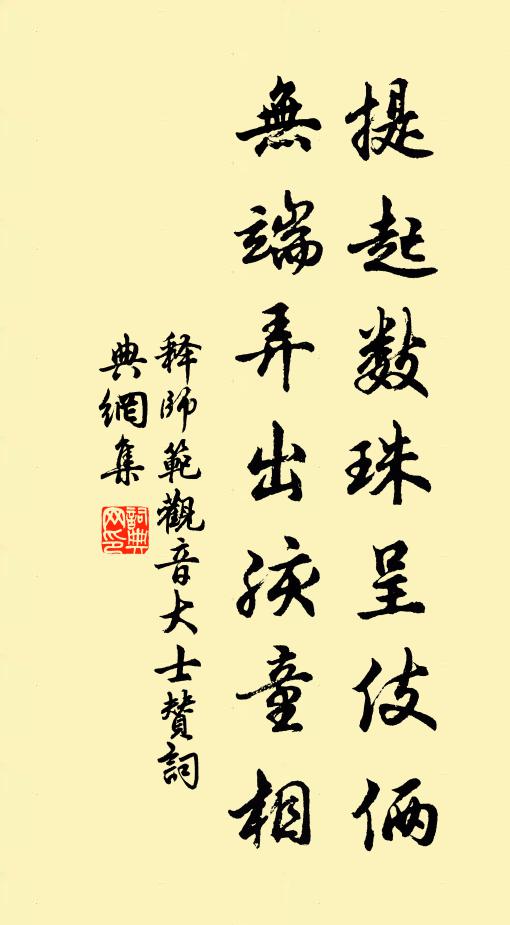 提起数珠呈伎俩
無端弄出孩童相
释師範觀音大士賛詞
典網集
詞典网印